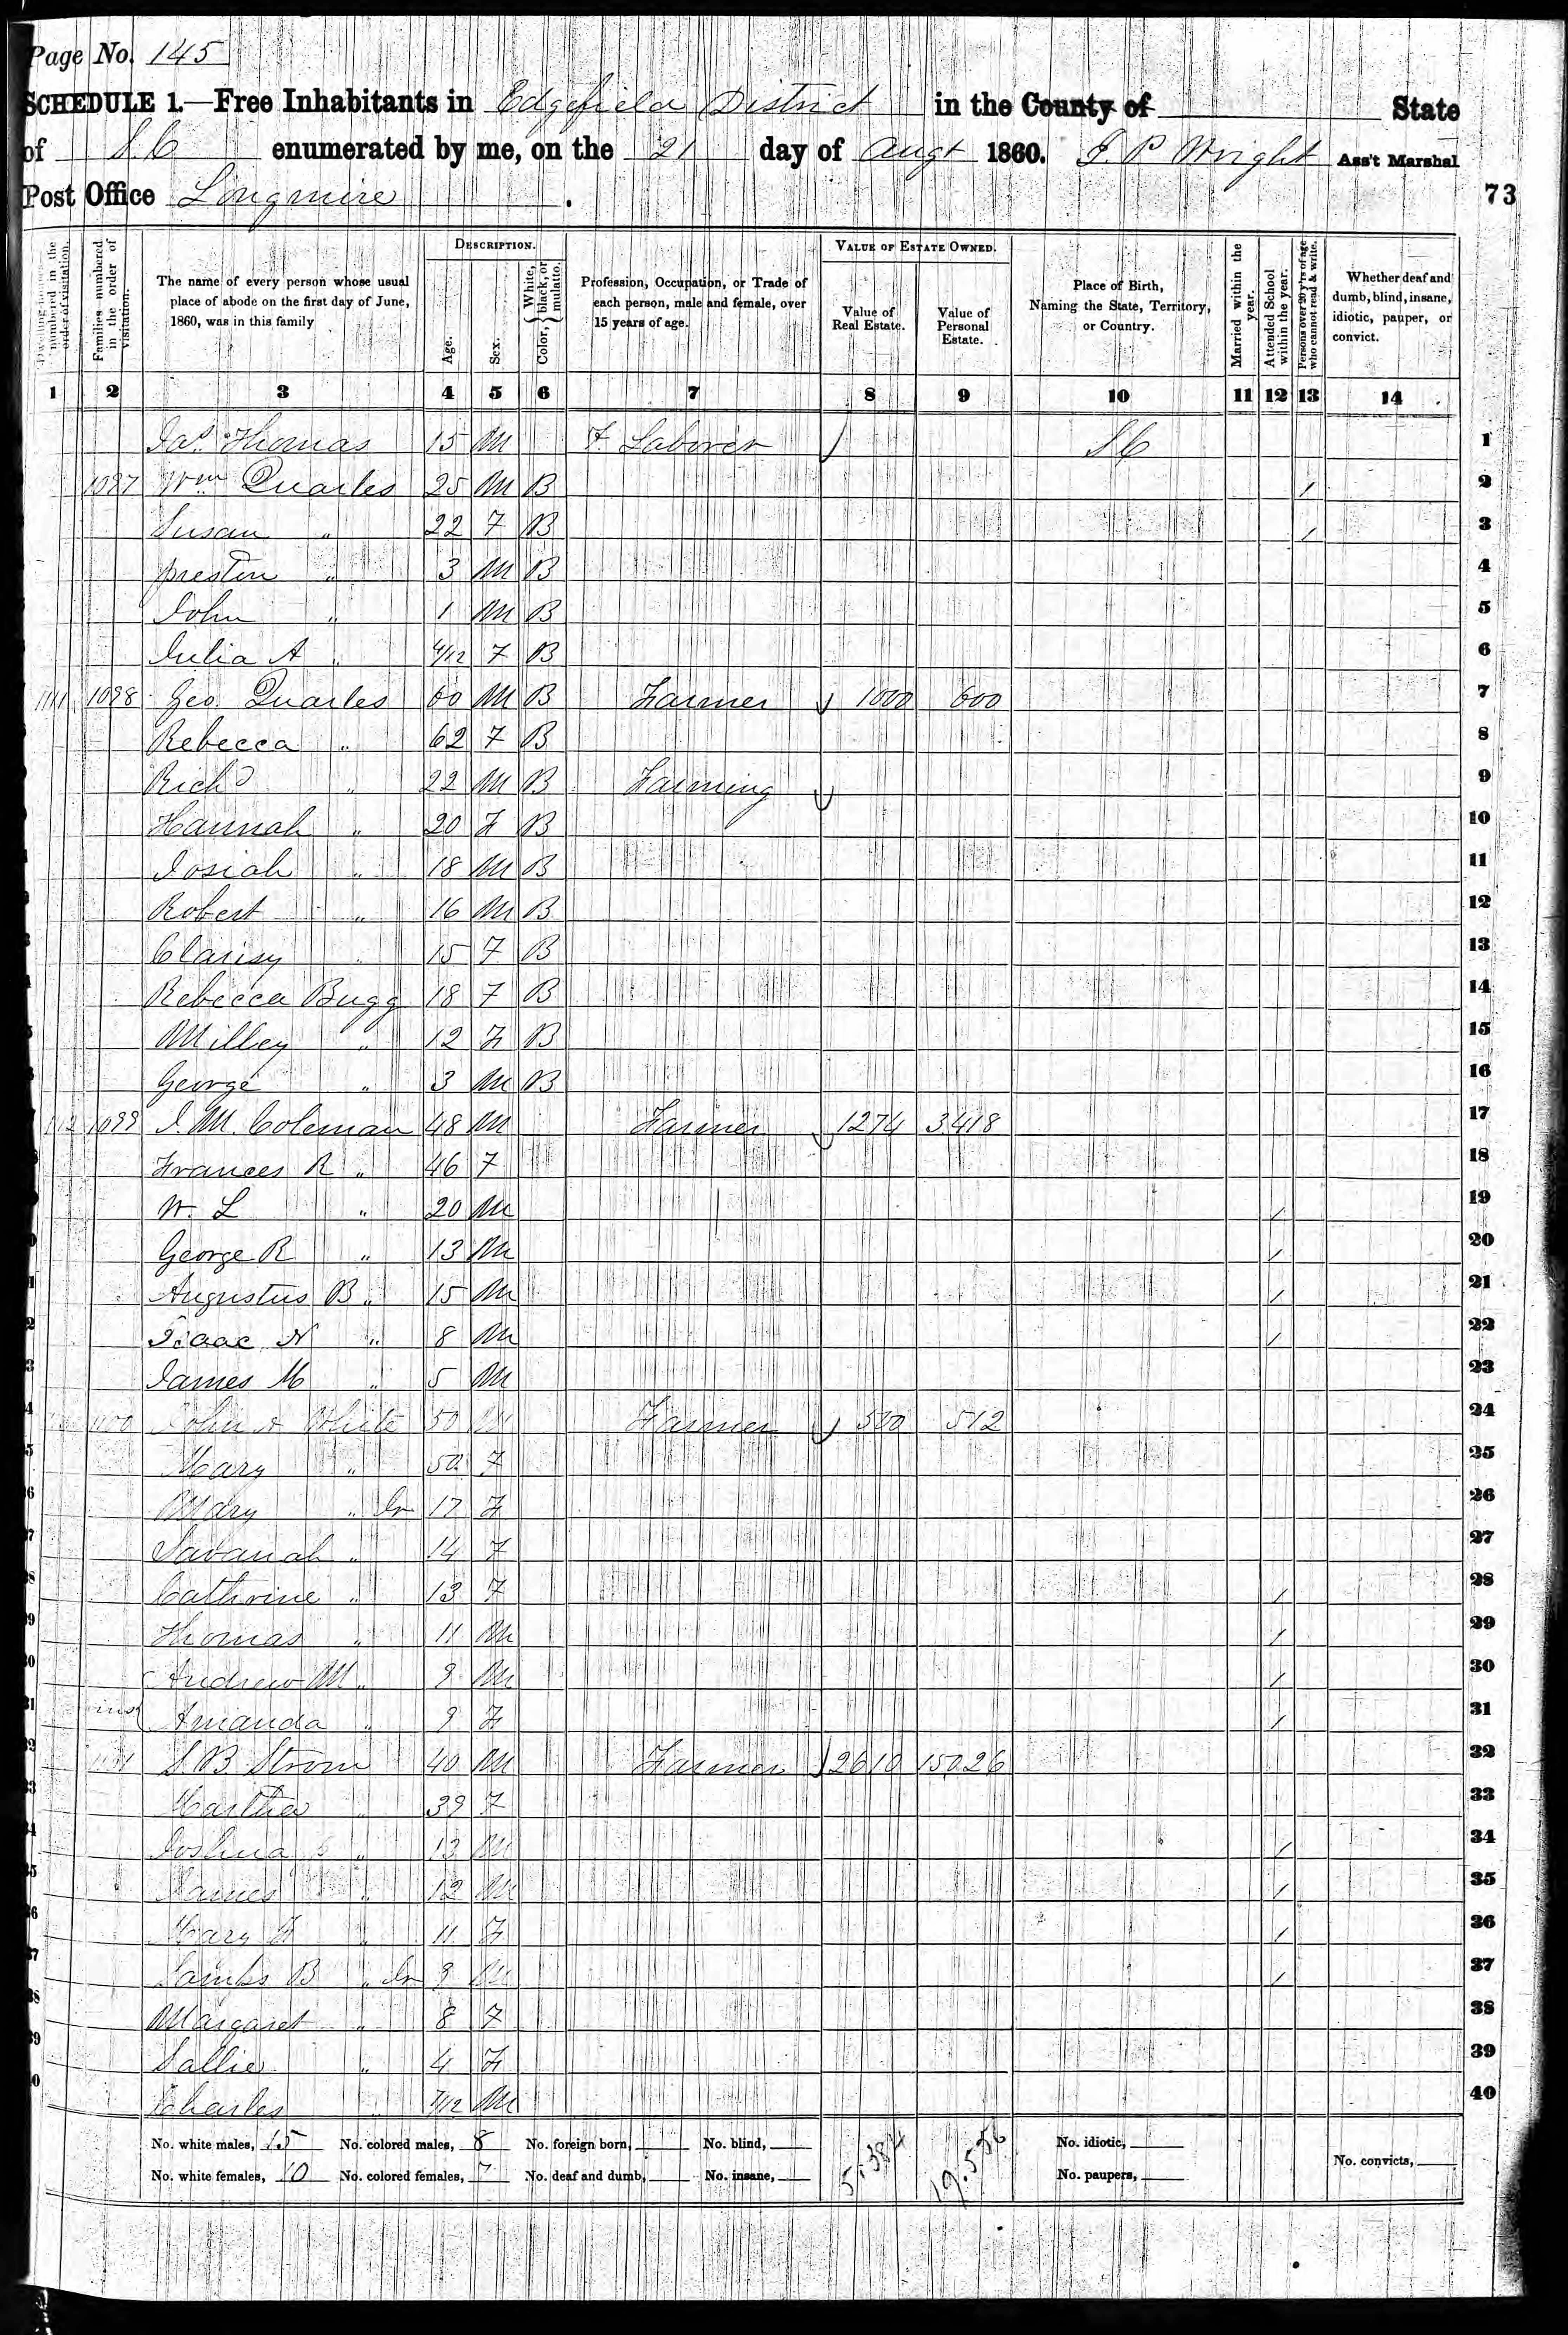 Page No. 145
SCHEDULE 1.—Free Inhabitants in Edgefield District in the County of State
of S.C enumerated by me, on the 21 day of Augt 1860. J. P Wright Ass't Marshal
Post Office Longmire. 73
Dwelling-houses numbered in the order of visitation. Families numbered in the order of visitation. The name of every person whose usual place of abode on the first day of June, 1860, was in this family DESCRIPTION. Age. Sex. Color, { White, black, or mulatto. Profession, Occupation, or Trade of each person, male and female, over 15 years of age. VALUE OF ESTATE OWNED. Value of Real Estate. Value of Personal Estate. Place of Birth, Naming the State, Territory, or Country. Married within the year. Attended School within the year. Persons over 20 y'rs of age who cannot read & write. Whether deaf and dumb, blind, insane, idiotic, pauper, or convict.
1 2 3 4 5 6 7 8 9 10 11 12 13 14
Jas. Thomas 15 M F. Laborer S C 1
1097 Wm Quarles 25 M B / 2
Susan " 22 F B / 3
Preston " 3 M B 4
John " 1 M B 5
Julia A " 4/12 F B 6
1111 1098 Geo. Quarles 60 M B Farmer 1000 600 7
Rebecca " 62 F B 8
Richd " 22 M B Farming 9
Hannah " 20 F B 10
Josiah " 18 M B 11
Robert " 16 M B 12
Clarisy " 15 F B 13
Rebecca Bugg 18 F B 14
Milley " 12 F B 15
George " 3 M B 16
1112 1099 J. M. Coleman 48 M Farmer 1274 3418 17
Frances R " 46 F 18
W. L " 20 M / 19
George R " 13 M / 20
Augustus B " 15 M / 21
Isaac N " 8 M / 22
James M " 5 M 23
1100 John A White 50 M Farmer 500 512 24
Mary " 50 F 25
Mary " Jr 17 F 26
Savanah " 14 F 27
Cathrine " 13 F / 28
Thomas " 11 M / 29
Andrew M " 9 M / 30
Amanda " 9 F / 31
1101 S. B Strom 40 M Farmer 2610 15026 32
Martha " 39 F 33
Joshua " 13 M / 34
James " 12 M / 35
Mary " 11 F / 36
Samps B " Jr 9 M / 37
Margaret " 8 F 38
Sallie " 4 F 39
Charles " 7/12 M 40
No. white males, 15 No. colored males, 8 No. foreign born, No. blind, 5,384 19,556 No. idiotic,
No. white females, 10 No. colored females, 7 No. deaf and dumb, No. insane, No. paupers, No. convicts,